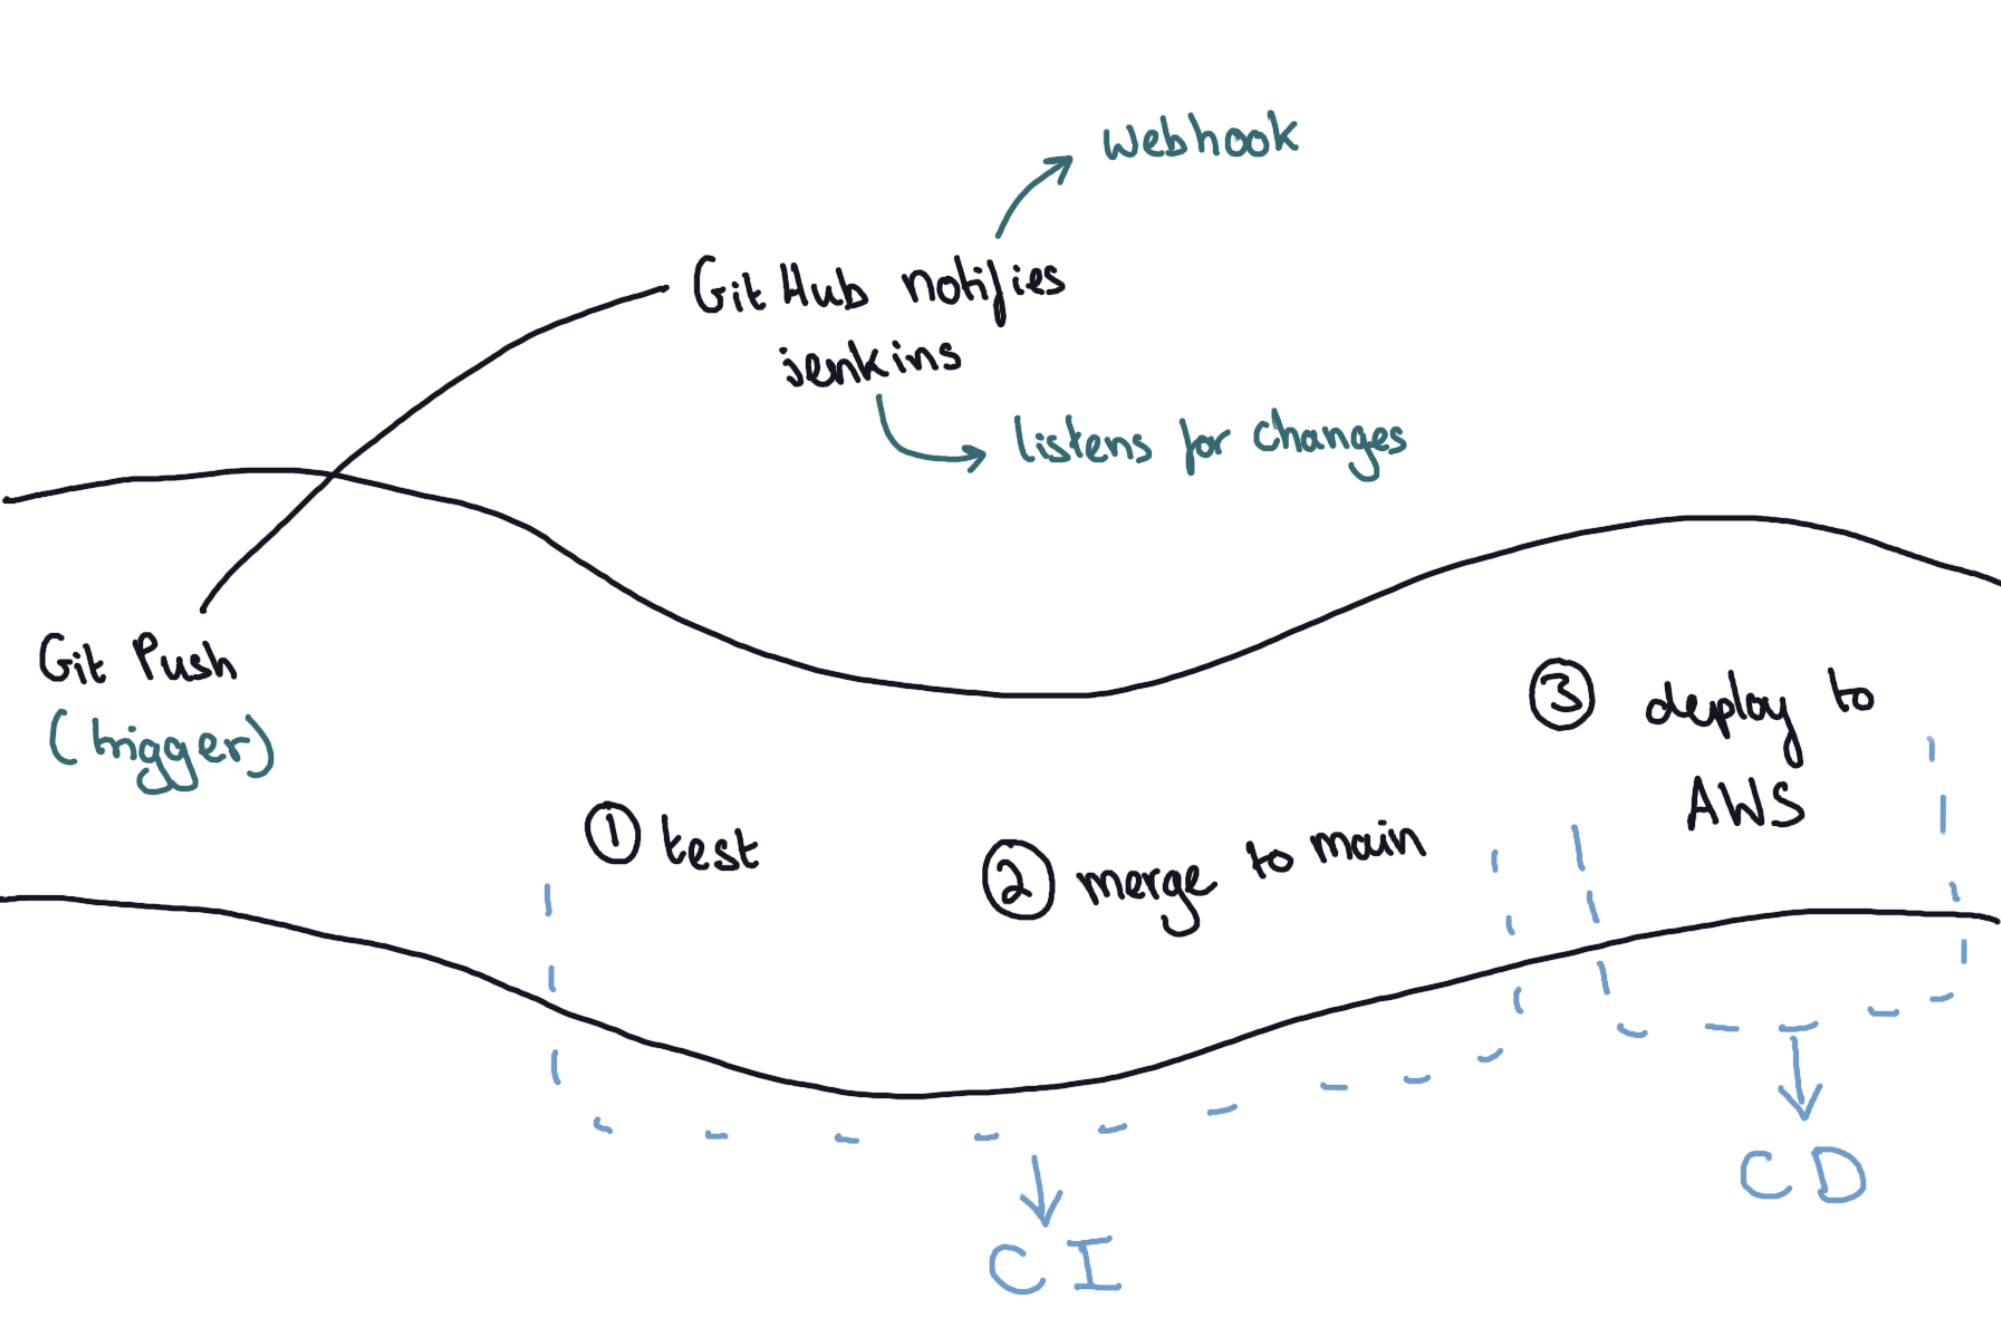 Webhook
GitHub notifies
jenkins
listens for changes
Git Push
(trigger)
① test
② merge to main
③ deploy to
AWS
CI
CD